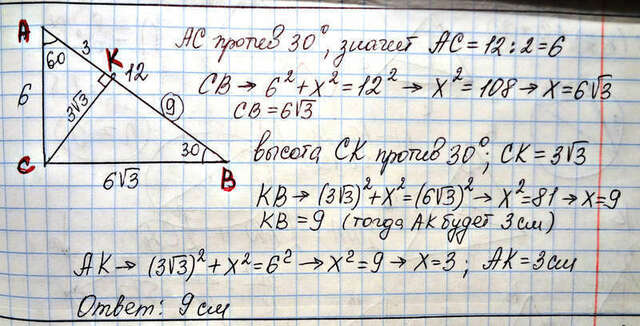 A
60
3
K
12
6
3√3
9
30
C
6√3
B
АС против 30°, значит АС = 12 : 2 = 6
СВ → 6² + x² = 12² → x² = 108 → x = 6√3
СВ = 6√3
высота СК против 30°; СК = 3√3
КВ → (3√3)² + x² = (6√3)² → x² = 81 → x = 9
КВ = 9 (тогда АК будет 3 см)
АК → (3√3)² + x² = 6² → x² = 9 → x = 3; АК = 3 см
Ответ: 9 см